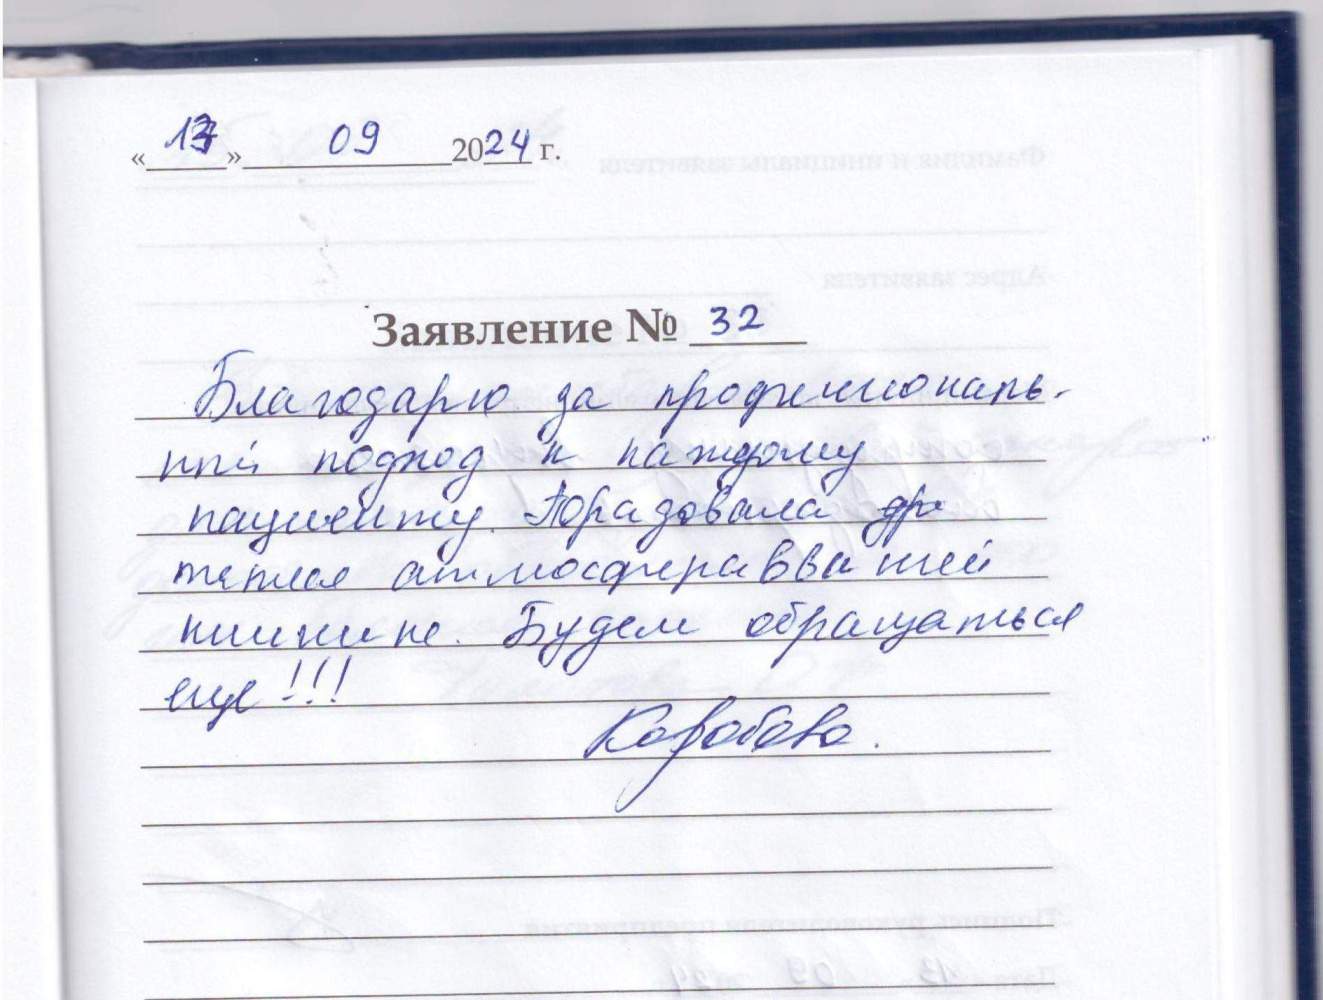 « 13 » 09 2024 г.
Заявление № 32
Благодарю за профессиональ-
ный подход к каждому
пациенту. Порадовала
теплая атмосфера в вашей
клинике. Будем обращаться
еще!!!
Коробова.